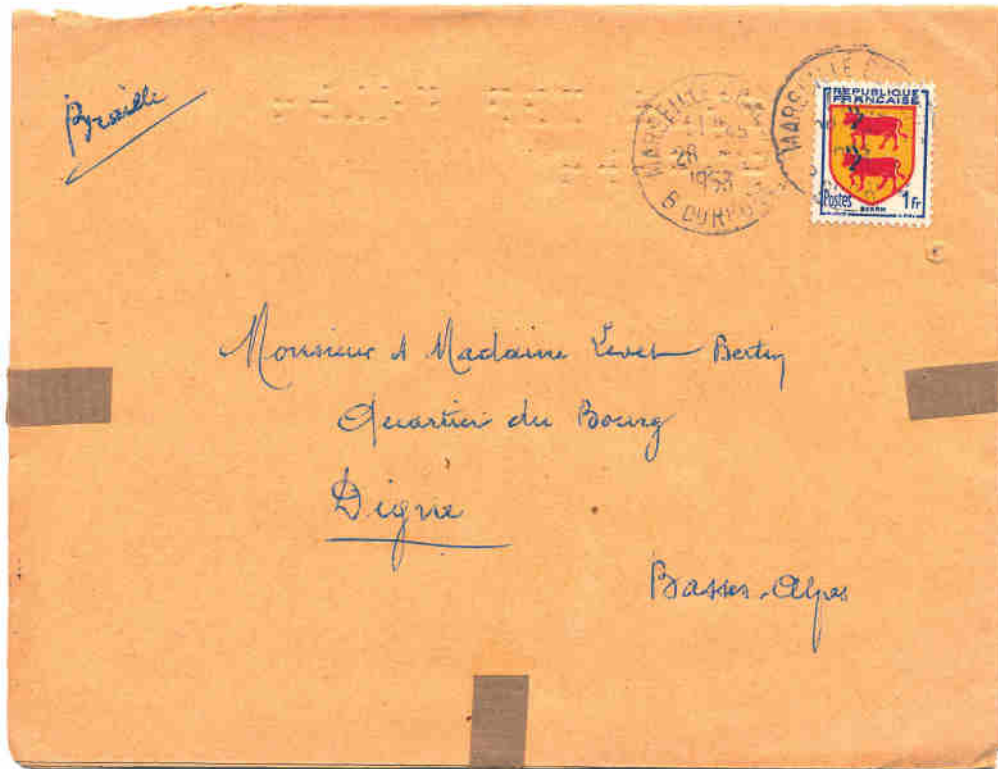 Braille
MARSEILLE
28
1953
MARSEILLE
REPUBLIQUE
FRANCAISE
Postes
1Fr
BEARN
Monsieur & Madame Bertin
Quartier du Bourg
Digne
Basses-Alpes